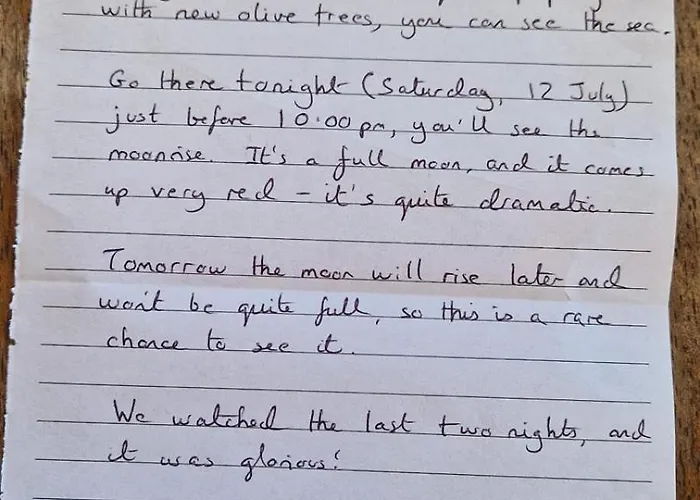 with new olive trees, you can see the sea.
Go there tonight (Saturday, 12 July)
just before 10.00 pm, you'll see the
moonrise. It's a full moon, and it comes
up very red – it's quite dramatic.
Tomorrow the moon will rise later and
won't be quite full, so this is a rare
chance to see it.
We watched the last two nights, and
it was glorious!